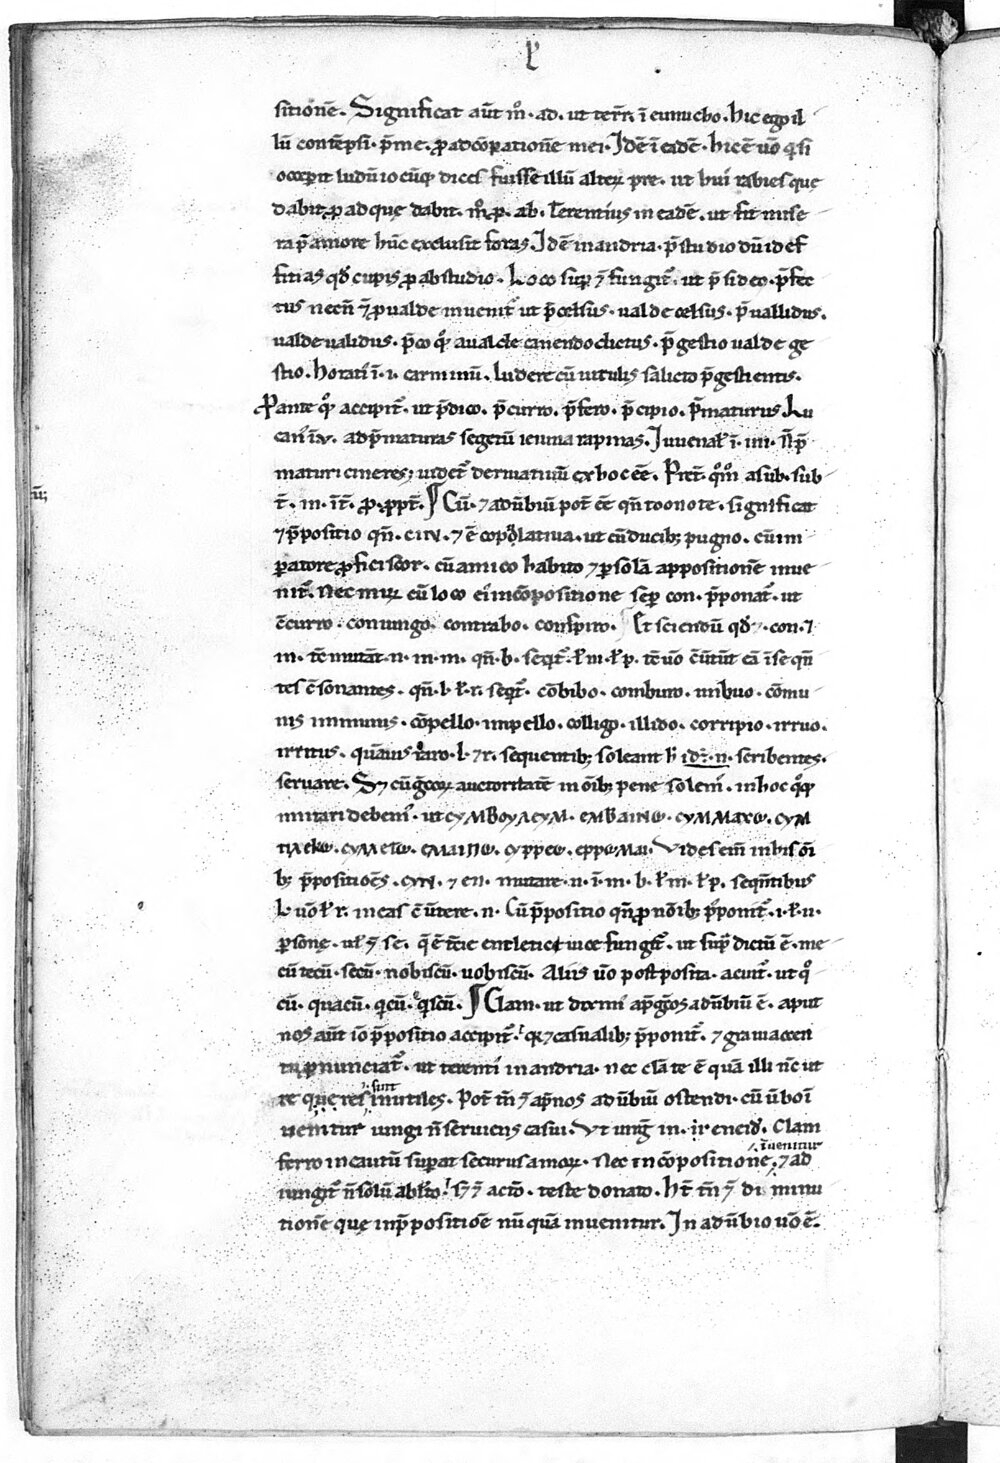 sitionē. Significat aūt m̊. ad. ut terr̄. ī eunucho. hic ego il
lū contēpsi. p̄me. ꝓ ad cōꝑationē mei. Idē ī eadē. hic ē uo᷒ q̄ si
occeꝑit ludū iocūq; dices fuisse illū alterꝝ pre. ut hui rabies que
dabit. ꝓ ad quę dabit. m̊. ꝓ. ab. Terentius in eadē. ut fit mise
ra p̄amore hūc exclusit foras. Idē in andria. p̄studio dū id ef
fitias qd̄ cupis ꝓ abstudio. Loco suꝑ ⁊ fungit᷒. ut p̄sideo. p̄fec
tus necn̄ ⁊ ꝓ ualde inuenit᷒ ut p̄celsus. ualde celsus. p̄ualidus.
ualde ualidus. p̄co q̊ aualde canendo dictus. p̄gestio ualde ge
stio. horati ī. i. carminū. Ludere cū uitulis salicto p̄gestientis.
Pante q̊ accipit᷒. ut p̄dico. p̄curro. p̄fero. p̄cipio. p̄maturus Lu
can᷒ īx. ad p̄maturas segetū ieiuna rapinas. Iuuenal᷒ ī. iiii. n̄ p̄
maturi cineres; uidet᷒ deriuatiuū ex hoc ēē. Pret᷒. q̊m̊ a sub. sub
t᷒. in. īt᷒. ꝓ. ꝓpt᷒. ¶ Cū. ⁊ aduƀiū pot᷒ ēē qn̄ toonote. significat
⁊ p̄positio qn̄. CIN. ⁊ ē copolatiua. ut cū ducib; pugno. cū im
ꝑatore ꝓficiscor. cū amico habito ⁊ ꝑ solā appositionē inue
nit᷒. Nec mirꝝ cū loco ei᷒ in cōpositione seꝑ con. p̄ponat᷒. ut
c̄curro. coniungo. contrabo. conspiro. Et sciendū qd̄ ⁊. con. ⁊
in. tē mutāt. n. in. m. qn̄. b. seqt᷒. ł m. ł p. tē uo᷒ c̄ūtūt eā ī seqn̄
tes c̄sonantes. qn̄. l. ł. r. seqt᷒. cōbibo. comburo. imbuo. cōmu
nis immunis. cōpello. impello. colligo. illido. corripio. irruo.
irritus. quāuis raro. l. ⁊ r. sequentib; soleant h̄ idē. n. scribentes.
seruare. S; cū grecoꝝ auctoritatē in oīb; pene solem᷒. in hoc q̊q;
imitari debem᷒. ut CYMBOYΛEYM. EMBAINω. CYMMAXω. CYM
ΠΛΕΚω. CYΛΛΕΓω. EMAINω. CYPPEω. EPPEMAI. Vides eni᷒ in his oi
b; p̄positioēs. CYN. ⁊ EN. mutare. n. ī. m. b. ł m. ł p. seqn̄tibus
L uo᷒ ł r. in eas c̄uertere. n. Cū p̄positio qn̄ ꝓnoīb; p̄ponit᷒. i. ł. ii.
ꝑsonę. uł ⁊ se. q̄ ē tercie encletice uice fungit᷒. ut sup᷒ dictū ē. me
cū tecū. secū. nobiscū. uobiscū. Aliis uo᷒ postposita. acuit᷒. ut q̊
cū. quacū. q̄cū. qb᷒scū. ¶ Clam. ut dixim᷒ ap᷒ grecos aduƀiū ē. aput
nos aūt iō p̄positio accipit᷒. qꝛ ⁊ casualib; p̄ponit᷒. ⁊ graui accen
tu ꝓnunciat᷒. ut terenti᷒ in andria. nec clā te ē quā illi nc̄ ut
re que res sunt inutiles. Pot᷒ tn̄ ⁊ ap᷒ nos aduƀiū ostendi. cū ūboi᷒
uenitur iungi n̄ seruiens casui. Vt uirḡ in. i. eneid᷒. Clam
ferro incautū suꝑat securus amoꝝ. Nec in cōpositione inuenitur, ⁊ ad
iungit᷒ n̄ solū abł̄to. s; ⁊ actō. teste donato. ht᷒ tn̄ ⁊ diminu
tionē quę in p̄positiōe nūquā inuenitur. In aduƀio uo᷒ ē.